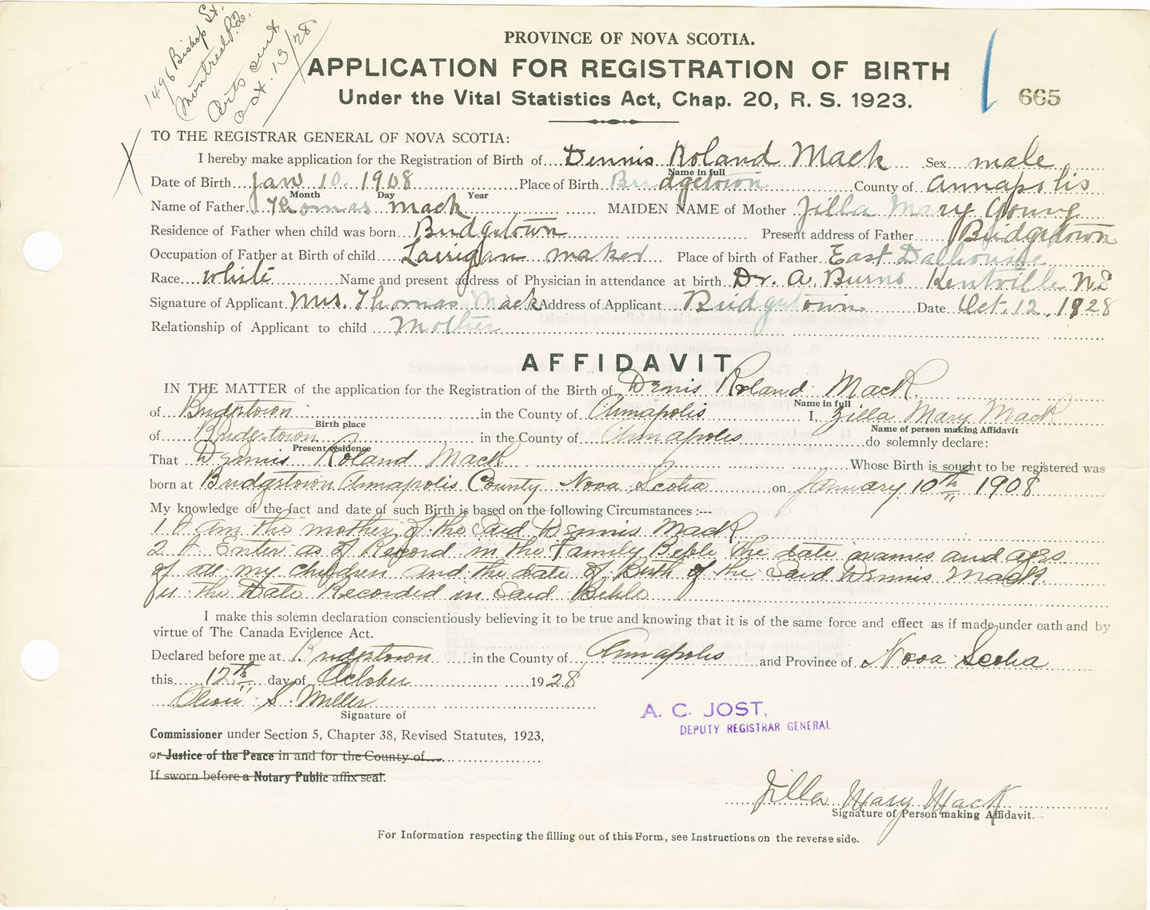 1496 Bishop St.
Montreal P.Q.
Certs sent
Oct. 13/28
PROVINCE OF NOVA SCOTIA.
APPLICATION FOR REGISTRATION OF BIRTH
Under the Vital Statistics Act, Chap. 20, R. S. 1923.
665
TO THE REGISTRAR GENERAL OF NOVA SCOTIA:
X
I hereby make application for the Registration of Birth of Dennis Roland Mack Sex male
Name in full
Date of Birth Jan 10 1908 Place of Birth Bridgetown County of Annapolis
Month Day Year
Name of Father Thomas Mack MAIDEN NAME of Mother Zilla Mary Young
Residence of Father when child was born Bridgetown Present address of Father Bridgetown
Occupation of Father at Birth of child Larrigan maker Place of birth of Father East Dalhousie
Race White Name and present address of Physician in attendance at birth Dr. A. Burns Kentville N.S
Signature of Applicant Mrs. Thomas Mack Address of Applicant Bridgetown Date Oct. 12 1928
Relationship of Applicant to child Mother
AFFIDAVIT
IN THE MATTER of the application for the Registration of the Birth of Denis Roland Mack
Name in full
of Bridgetown in the County of Annapolis I, Zilla Mary Mack
Birth place Name of person making Affidavit
of Bridgetown in the County of Annapolis do solemnly declare:
Present residence
That Dennis Roland Mack Whose Birth is sought to be registered was
born at Bridgetown Annapolis County Nova Scotia on January 10th 1908
My knowledge of the fact and date of such Birth is based on the following Circumstances :---
1. I am the mother of the Said Dennis Mack
2. I Enter as of Record in the Family Bible the date names and ages
of all my children and the date of Birth of the Said Dennis Mack
is the Date Recorded in Said Bible
I make this solemn declaration conscientiously believing it to be true and knowing that it is of the same force and effect as if made under oath and by
virtue of The Canada Evidence Act.
Declared before me at Bridgetown in the County of Annapolis and Province of Nova Scotia
this 12th day of October 1928
S. Miller
Signature of
A. C. JOST,
DEPUTY REGISTRAR GENERAL
Commissioner under Section 5, Chapter 38, Revised Statutes, 1923,
or Justice of the Peace in and for the County of
If sworn before a Notary Public affix seal.
Zilla Mary Mack
Signature of Person making Affidavit.
For Information respecting the filling out of this Form, see Instructions on the reverse side.